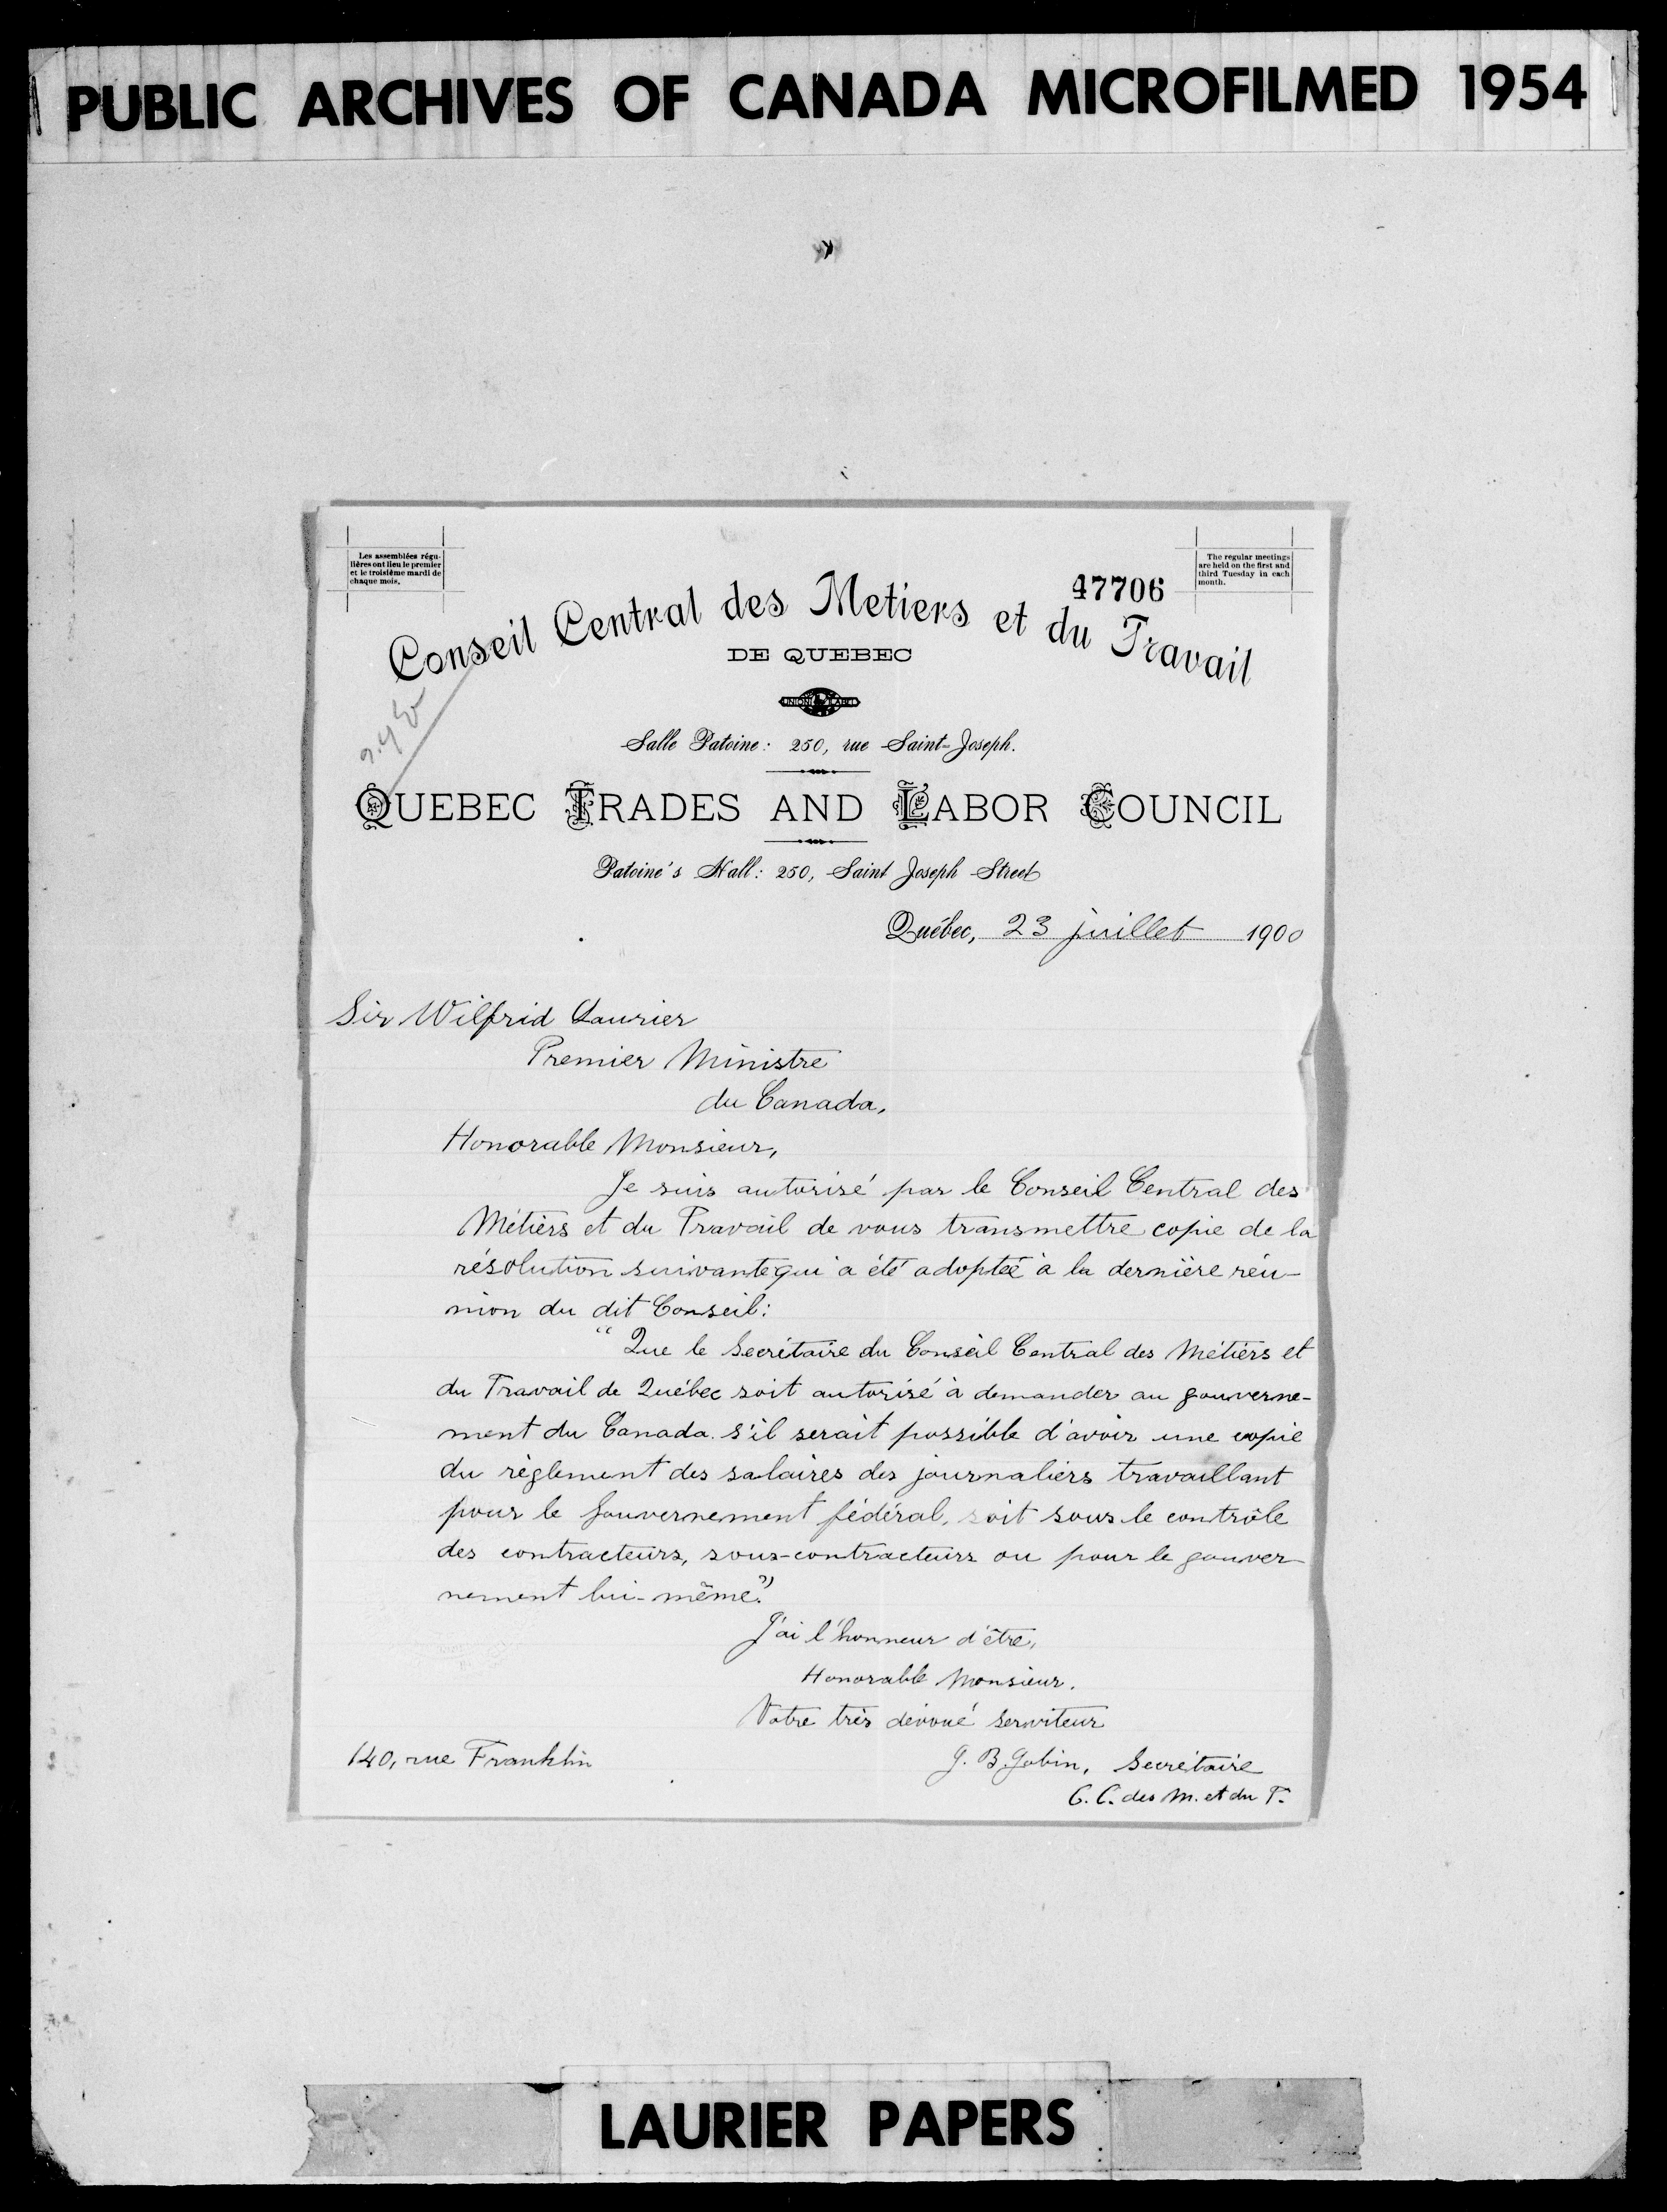 PUBLIC ARCHIVES OF CANADA MICROFILMED 1954
Les assemblées régu-
lières ont lieu le premier
et le troisième mardi de
chaque mois.
The regular meetings
are held on the first and
third Tuesday in each
month.
47706
Conseil Central des Metiers et du Travail
DE QUEBEC
UNION LABEL
Salle Patoine: 250, rue Saint-Joseph.
QUEBEC TRADES AND LABOR COUNCIL
Patoine's Hall: 250, Saint Joseph Street
Québec, 23 juillet 1900
Sir Wilfrid Laurier
Premier Ministre
du Canada,
Honorable Monsieur,
Je suis autorisé par le Conseil Central des
Métiers et du Travail de vous transmettre copie de la
résolution suivante qui a été adoptée à la dernière réu-
nion du dit Conseil:
"Que le Secrétaire du Conseil Central des Métiers et
du Travail de Québec soit autorisé à demander au gouverne-
ment du Canada s'il serait possible d'avoir une copie
du règlement des salaires des journaliers travaillant
pour le Gouvernement fédéral, soit sous le contrôle
des contracteurs, sous-contracteurs ou pour le gouver-
nement lui-même."
J'ai l'honneur d'être,
Honorable Monsieur.
Votre très dévoué serviteur
140, rue Franklin
G. B. Gobin, Secrétaire
C. C. des M. et du T.
LAURIER PAPERS